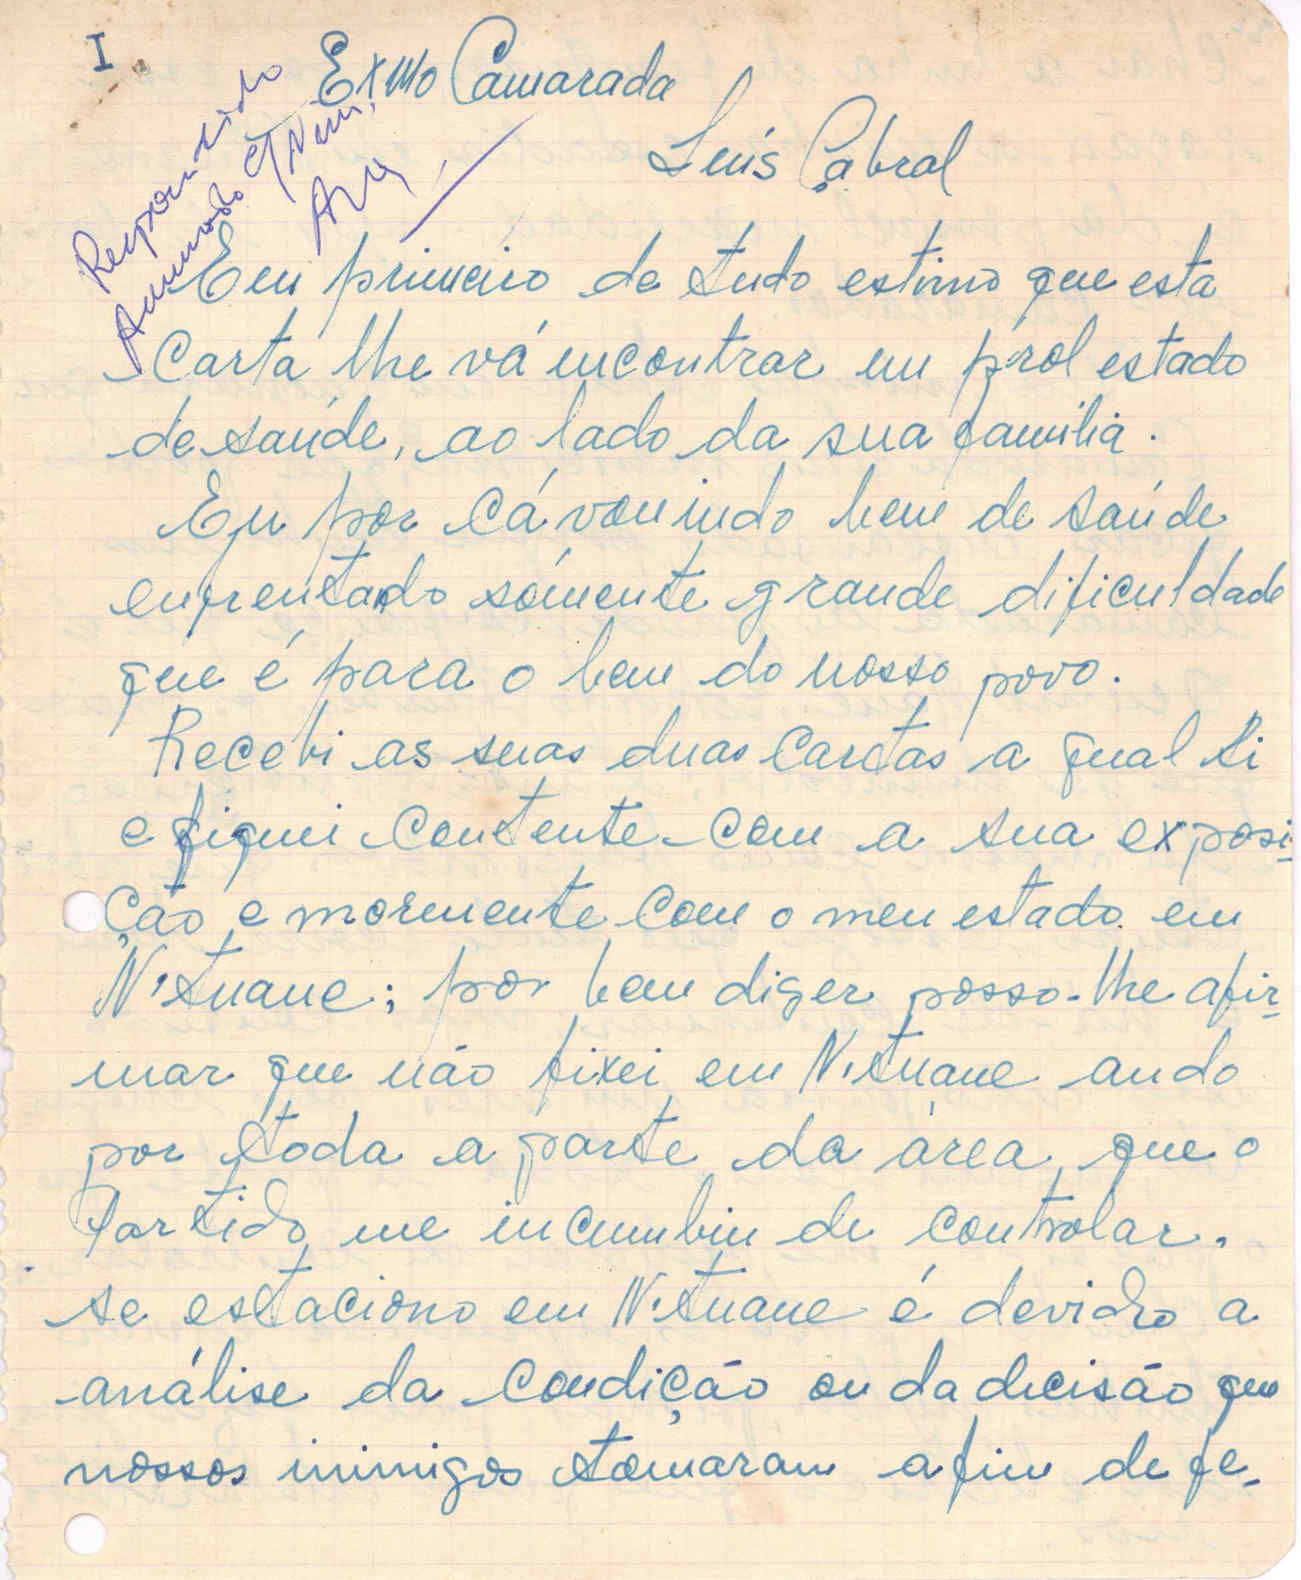 I
Exmo Camarada
Luís Cabral
Respondido
Em primeiro de tudo estimo que esta
Carta lhe vá encontrar em pról estado
de saúde, ao lado da sua família.
Eu por cá vou indo bem de saúde
enfrentando sómente grande dificuldade
que é para o bem do nosso povo.
Recebi as suas duas Cartas a qual li
e fiquei contente com a sua exposi-
ção e mormente com o meu estado em
N'Tuane; por bem diser posso-lhe afir-
mar que não fixei em N'Tuane ando
por toda a parte da área que o
Partido me incumbiu de controlar.
se estaciono em N'Tuane é devido a
análise da condição ou da decisão que
nossos inimigos tomaram afim de fe-